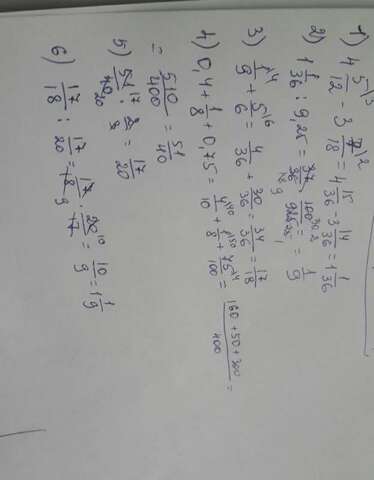 1) 4 5/12 - 3 7/18 = 4 15/36 - 3 14/36 = 1 1/36
2) 1 1/36 : 9,25 = 37/36 · 100/925 = 1/9
3) 1/9 + 5/6 = 4/36 + 30/36 = 34/36 = 17/18
4) 0,4 + 1/8 + 0,75 = 4/10 + 1/8 + 75/100 = 160 + 50 + 300/400 =
= 510/400 = 51/40
5) 51/40 · 2/3 = 17/20
6) 17/18 : 17/20 = 17/18 · 20/17 = 10/9 = 1 1/9